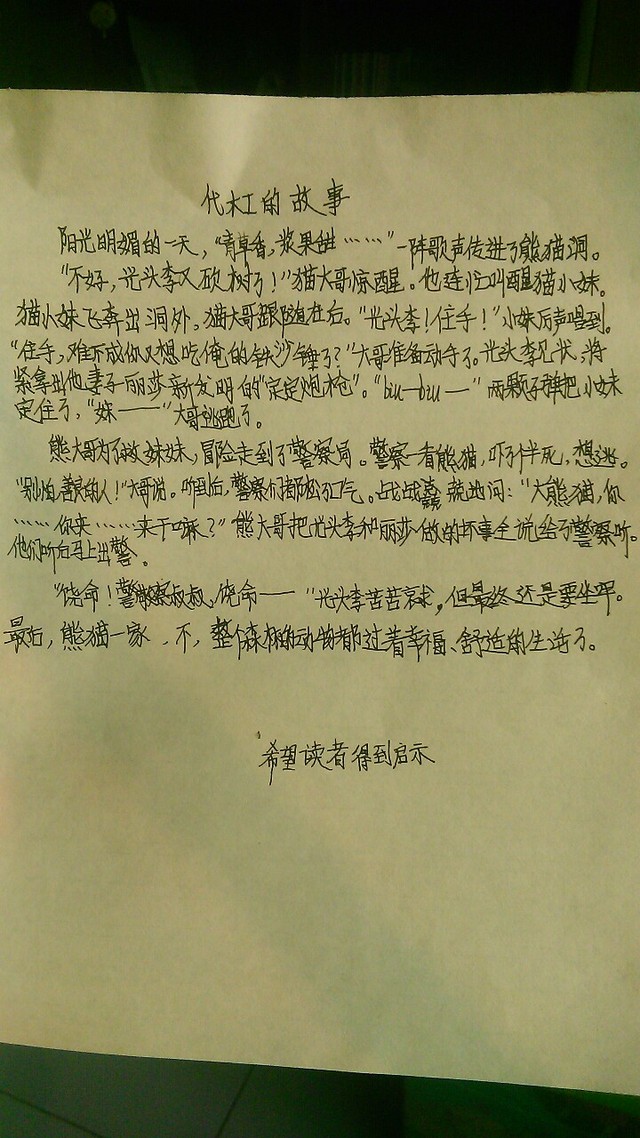 代木工的故事
阳光明媚的一天，“青草香，浆果甜……”一阵歌声传进了熊猫洞。
“不好，光头李又砍树了！”猫大哥惊醒。他连忙叫醒猫小妹。
猫小妹飞奔出洞外，猫大哥跟随在后。“光头李！住手！”小妹厉声唱到。
“住手，难不成你又想吃俺的铁沙锤了？”大哥准备动手了。光头李见状，将
紧拿出他妻子丽莎新发明的“定定炮枪”。“biu—biu—”两颗子弹把小妹
定住了，“妹——”大哥逃跑了。
熊大哥为了救妹妹，冒险走到了警察局。警察一看熊猫，吓个半死，想逃。
“别怕，善良的人！”大哥说。听到后，警察们都松了口气。战战兢兢地问：“大熊猫，你
……你来……来干嘛？”熊大哥把光头李和丽莎做的坏事全说给了警察听。
他们听后马上出警。
“饶命！警察叔叔，饶命——”光头李苦苦哀求，但最终还是要坐牢。
最后，熊猫一家，不，整个森林的动物都过着幸福、舒适的生活了。
希望读者得到启示